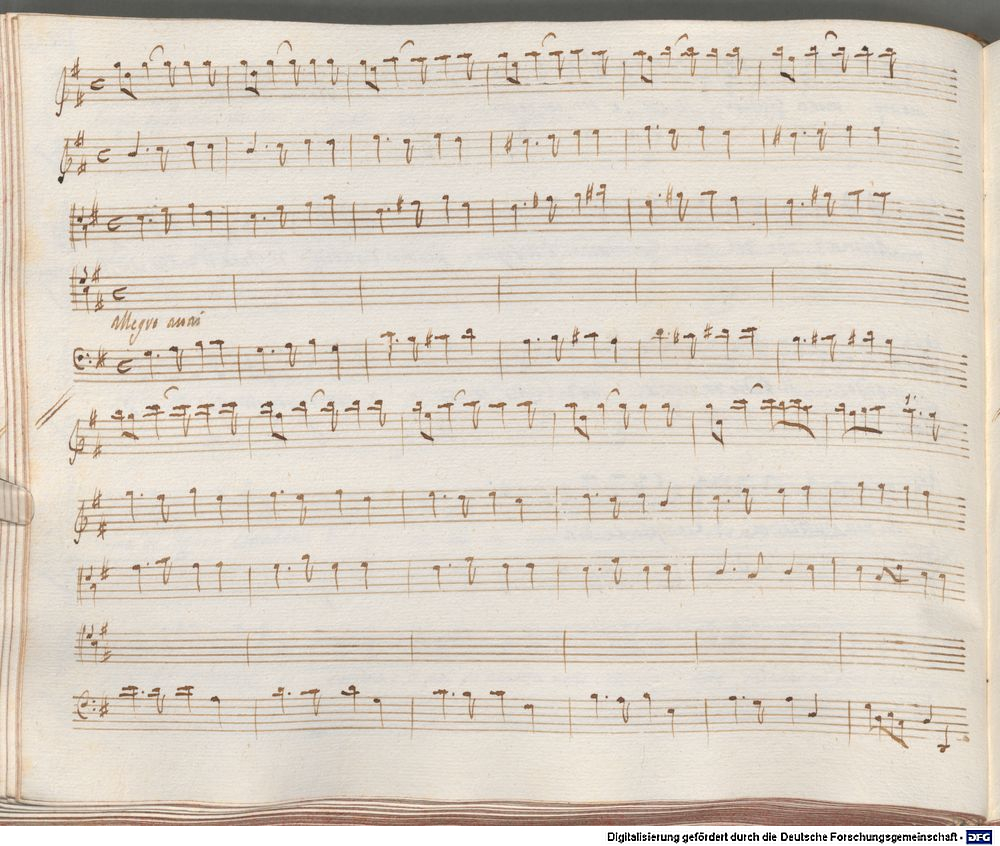 allegro assai
Digitalisierung gefördert durch die Deutsche Forschungsgemeinschaft - DFG